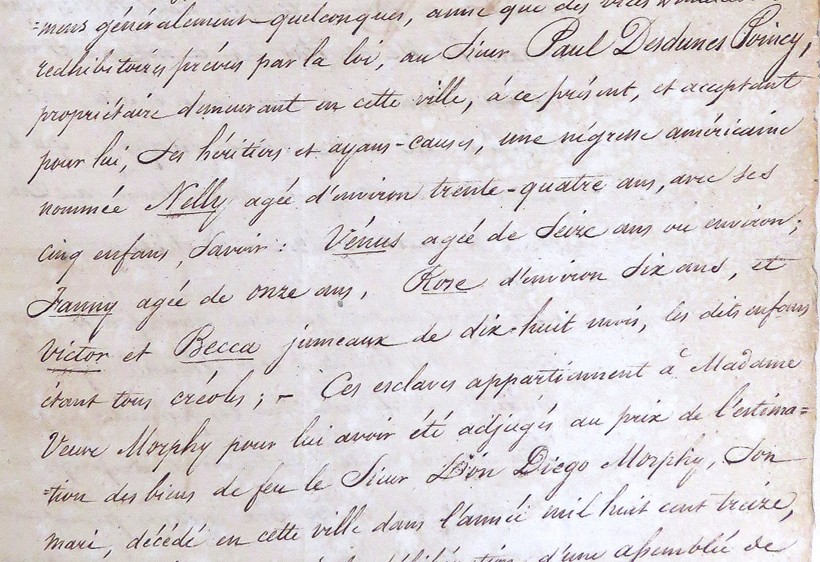 =mens généralement quelconques, ainsi que des vices
redhibitoires prévus par la loi, au Sieur Paul Desdunes Poincy,
propriétaire demeurant en cette ville, à ce présent, et acceptant
pour lui, Ses héritiers et ayans-causes, une négresse américaine
nommée Nelly agée d'environ trente-quatre ans, avec ses
cinq enfans, Savoir : Vénus agée de Seize ans ou environ;
Fanny agée de onze ans, Rose d'environ Six ans, et
Victor et Becca jumeaux de dix-huit mois, les dits enfans
étant tous créols; - Ces esclaves appartiennent à Madame
Veuve Morphy pour lui avoir été adjugés au prix de l'estima=
=tion des biens de feu le Sieur Don Diego Morphy, Son
mari, décédé en cette ville dans l'année mil huit cent treize,
d'une assemblée de